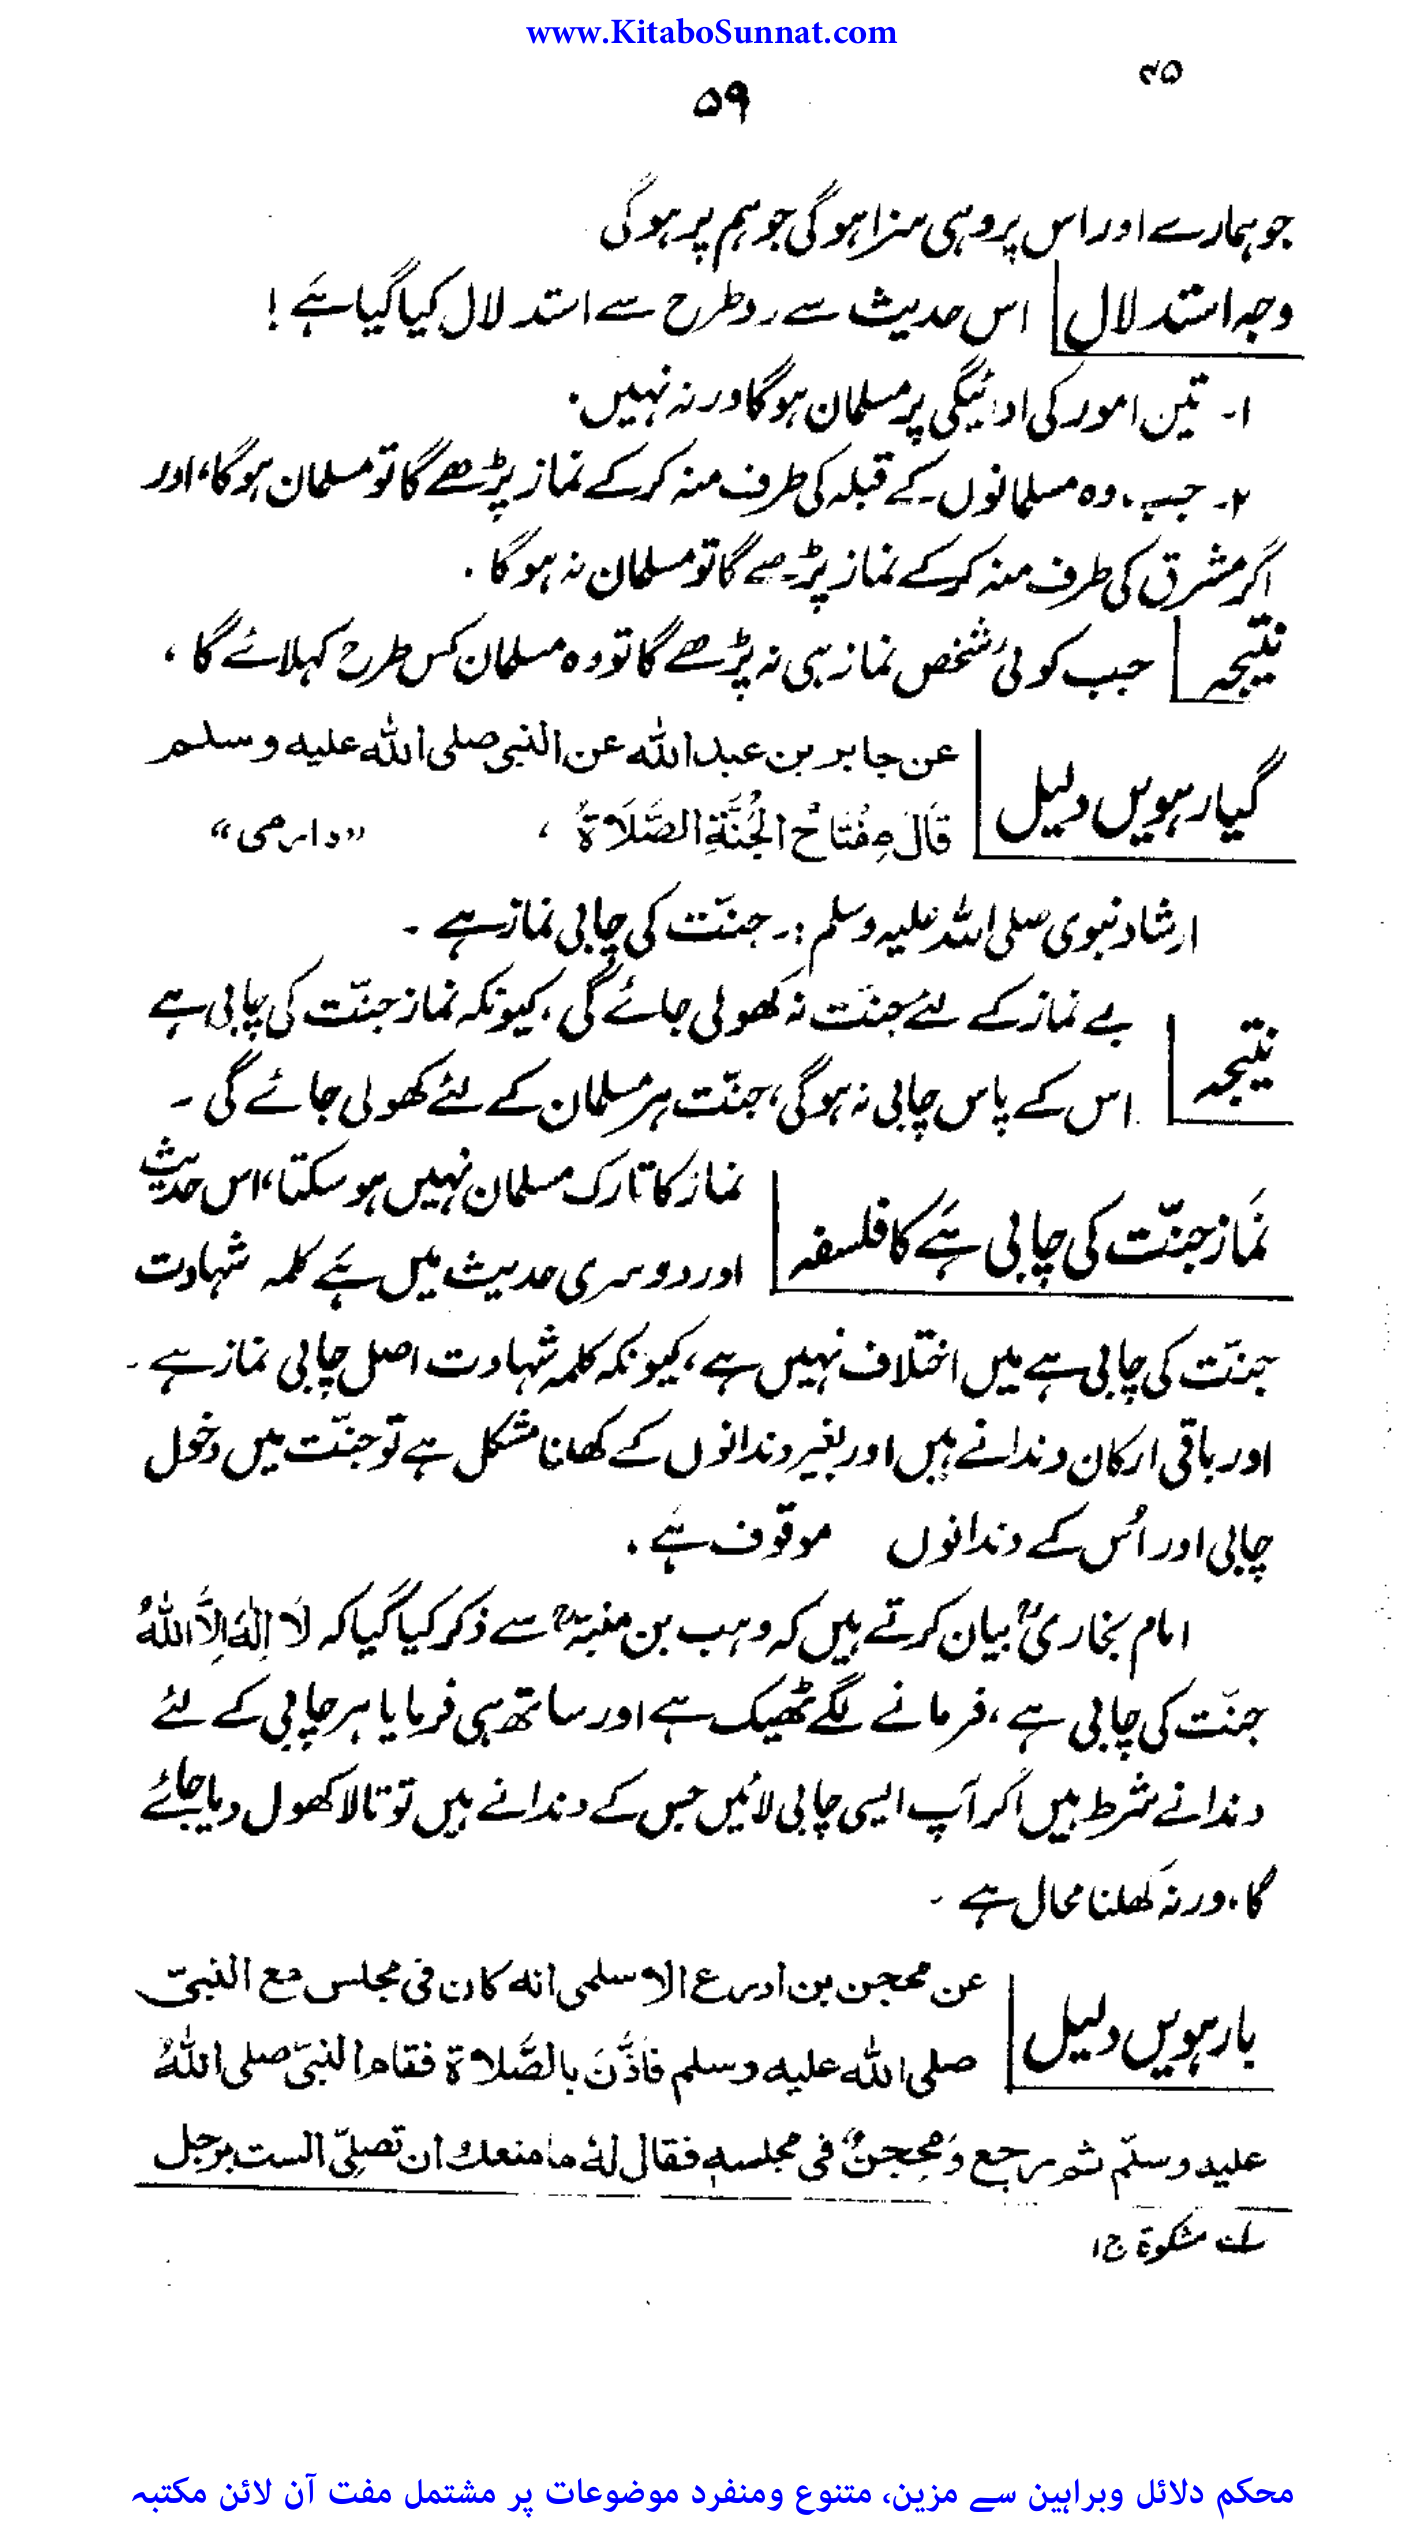 www.KitaboSunnat.com
۵۹
جو ہمارے اور اس پر وہی سزا ہوگی جو ہم پر ہوگی
وجہ استدلال اس حدیث سے دو طرح سے استدلال کیا گیا ہے !
۱۔ تین امور کی ادائیگی پر مسلمان ہوگا ورنہ نہیں۔
۲۔ جب وہ مسلمانوں کے قبلہ کی طرف منہ کرکے نماز پڑھے گا تو مسلمان ہوگا، اور
اگر مشرق کی طرف منہ کرکے نماز پڑھے گا تو مسلمان نہ ہوگا۔
نتیجہ جب کوئی شخص نماز ہی نہ پڑھے گا تو وہ مسلمان کس طرح کہلائے گا ،
گیارہویں دلیل عن جابر بن عبد الله عن النبی صلی الله علیه وسلم
قَالَ مِفْتَاحُ الْجَنَّةِ الصَّلَاةُ ، “دارمی”
ارشاد نبوی صلی اللہ علیہ وسلم :۔ جنّت کی چابی نماز ہے ۔
نتیجہ بے نماز کے لئے جنّت نہ کھولی جائے گی ، کیونکہ نماز جنّت کی چابی ہے
اس کے پاس چابی نہ ہوگی، جنّت ہر مسلمان کے لئے کھولی جائے گی ۔
نماز جنّت کی چابی ہے کا فلسفہ نماز کا تارک مسلمان نہیں ہو سکتا، اس حدیث
اور دوسری حدیث میں ہے کلمہ شہادت
جنّت کی چابی ہے میں اختلاف نہیں ہے ، کیونکہ کلمہ شہادت اصل چابی نماز ہے ۔
اور باقی ارکان دندانے ہیں اور بغیر دندانوں کے کھلنا مشکل ہے تو جنّت میں دخول
چابی اور اُس کے دندانوں موقوف ہے ۔
امام بخاریؒ بیان کرتے ہیں کہ وہب بن منبہؒ سے ذکر کیا گیا کہ لَا إِلٰهَ إِلَّا اللهُ
جنّت کی چابی ہے ، فرمانے لگے ٹھیک ہے اور ساتھ ہی فرمایا ہر چابی کے لئے
دندانے شرط ہیں اگر آپ ایسی چابی لائیں جس کے دندانے ہیں تو تالا کھول دیا جائے
گا، ورنہ کھلنا محال ہے ۔
بارہویں دلیل عن محجن بن ادرع الاسلمی انه کان فی مجلس مع النبیّ
صلی الله علیه وسلم فَاَذَّنَ بالصَّلاة فقام النبیّ صلی اللهُ
علیه وسلّم ثم رجع وَمحجنٌ فی مجلسهٖ فقال لهٗ ما منعك ان تصلّی الست برجل
مشکوٰۃ ج۱
محکم دلائل وبراہین سے مزین، متنوع ومنفرد موضوعات پر مشتمل مفت آن لائن مکتبہ